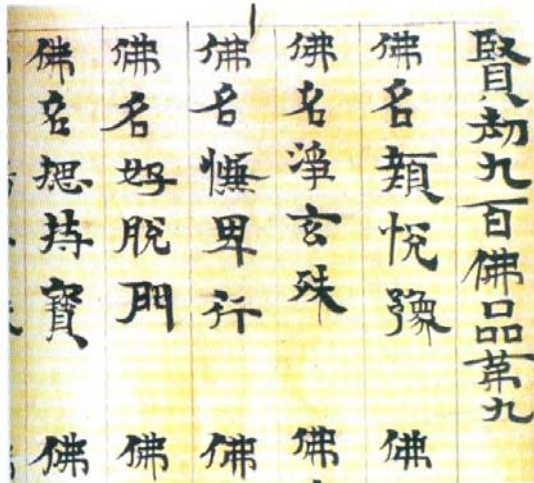 賢劫九百佛品第九
佛名頪悅豫 佛
佛名淨玄殊 佛
佛名卑行 佛
佛名好脫門 佛
佛名持寶 佛